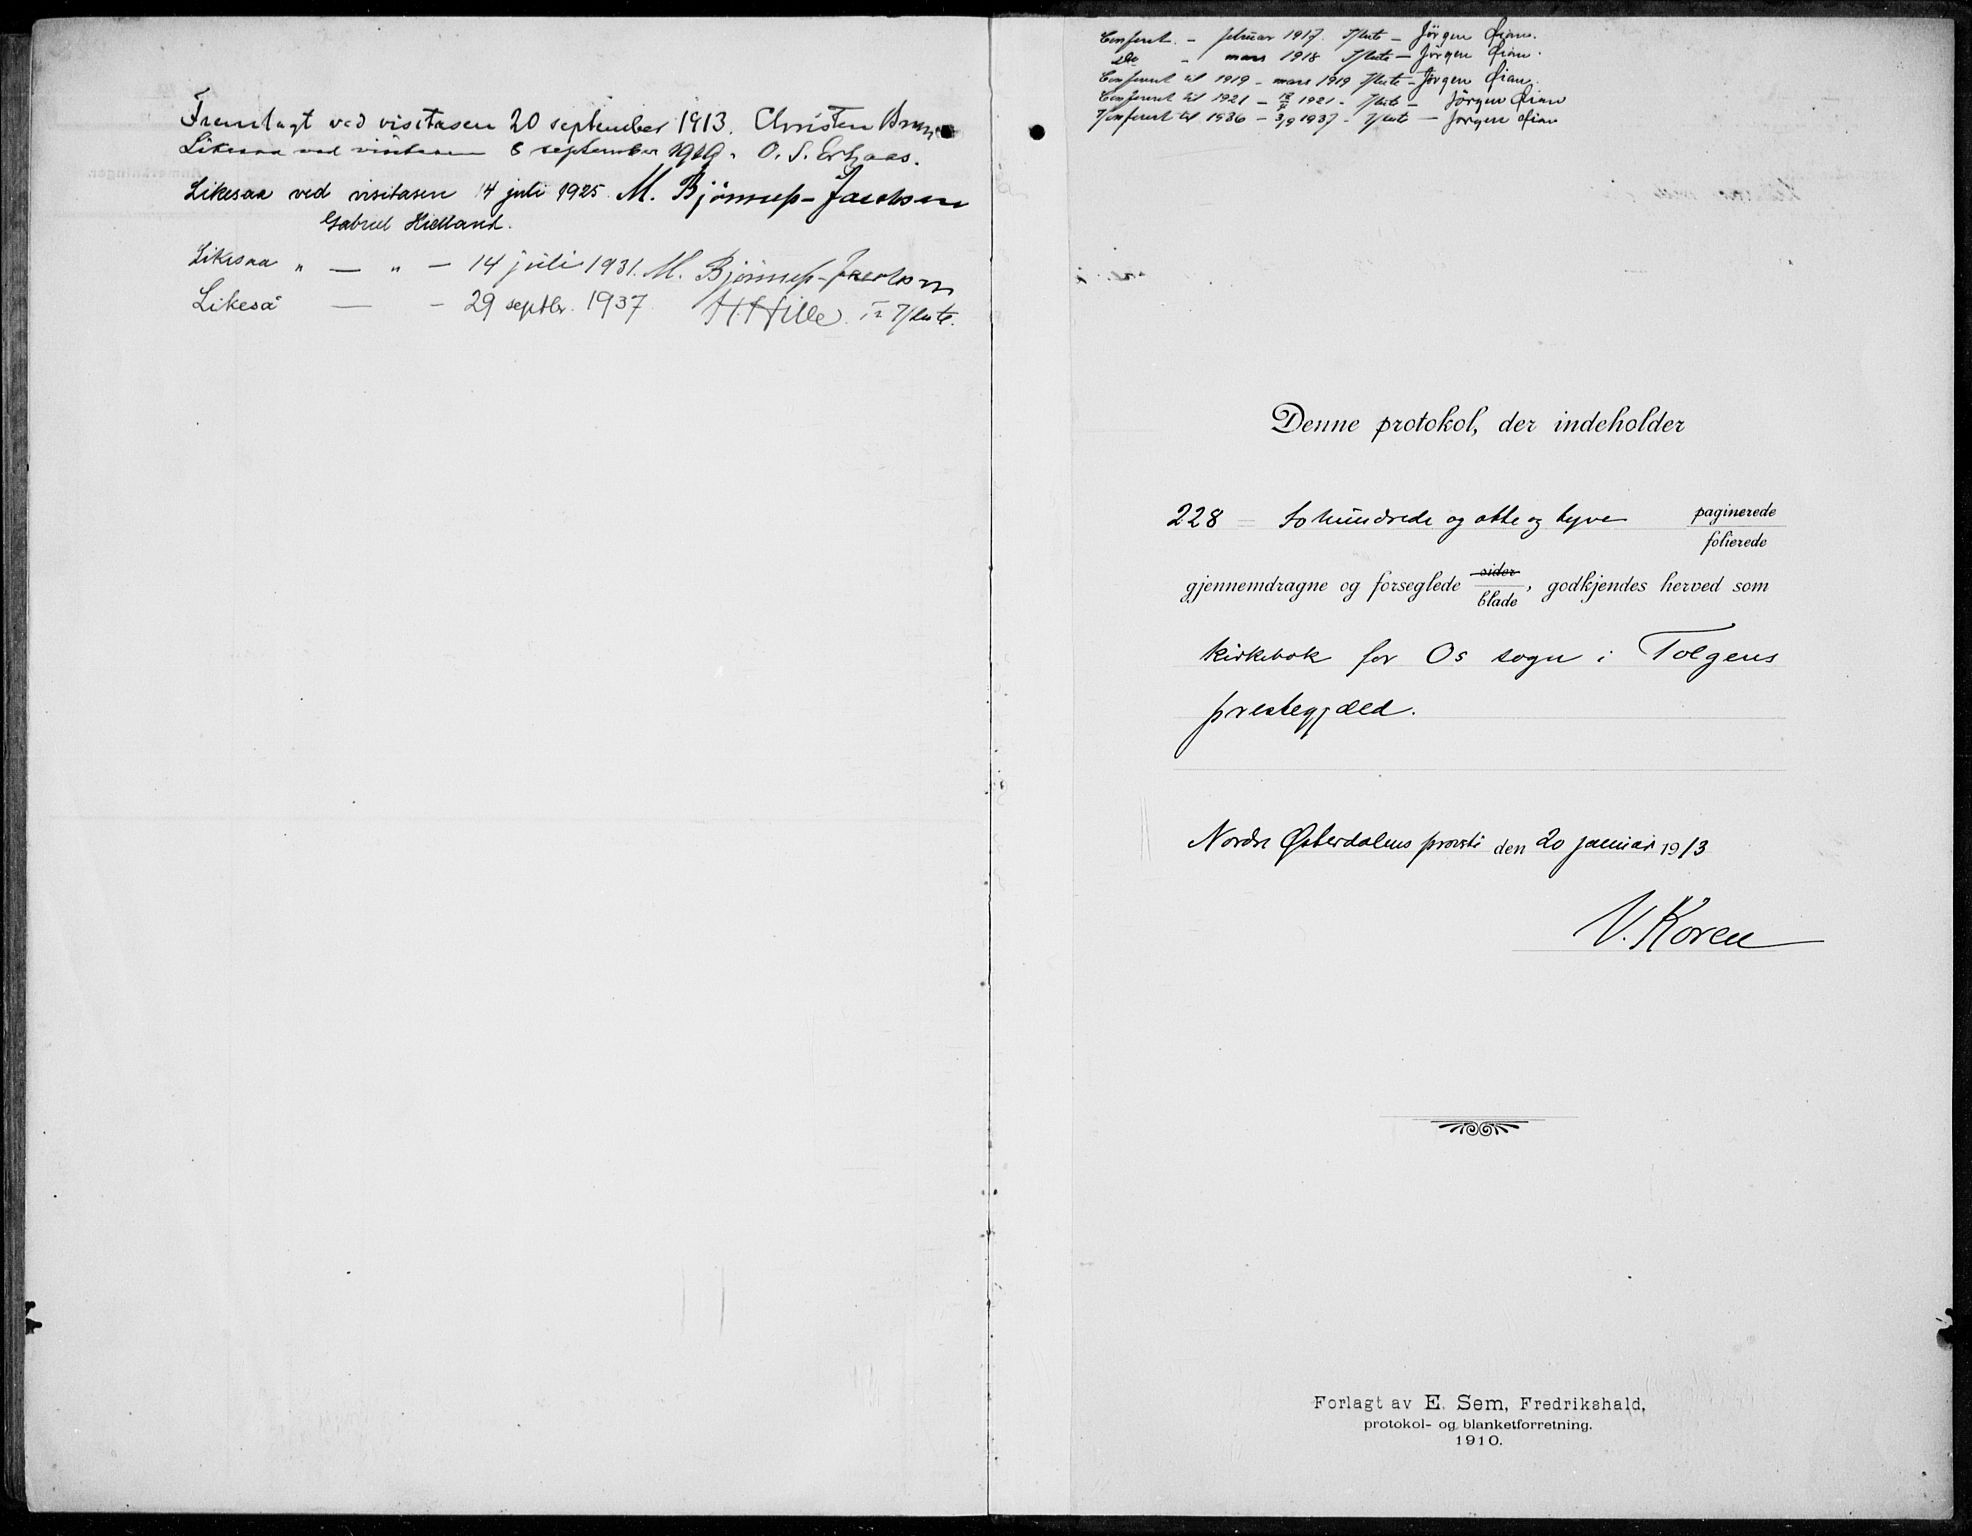 Fremlagt ved visitasen 20 september 1913. Christen Brun
Likesaa ved visitasen 8 september 1919. O. S.
Likesaa ved visitasen 14 juli 1925. M. Bjönness-Jacobsen
Gabriel Kielland.
Likesaa " — " — 14 juli 1931. M. Bjönness-Jacobsen
Likeså — - 29 septbr. 1937. H. Hille.
Conferert. - februar 1917. - Jörgen Öian.
Do - mars 1918 - Jörgen Öian.
Conferert til 1919 - mars 1919 - Jörgen Öian.
Conferert til 1921 - 1921 - - Jörgen Öian
Konferert til 1936 - 3/9 1937 - - Jörgen Öian
Denne protokol, der indeholder
228 = tohundrede og otte og tyve paginerede
folierede
gjennemdragne og forseglede sider
blade, godkjendes herved som
kirkebok for Os sogn i Tolgens
prestegjæld.
Nordre Østerdalens provsti den 20 januar 1913
V. Koren
Forlagt av E. Sem, Fredrikshald,
protokol- og blanketforretning.
1910.